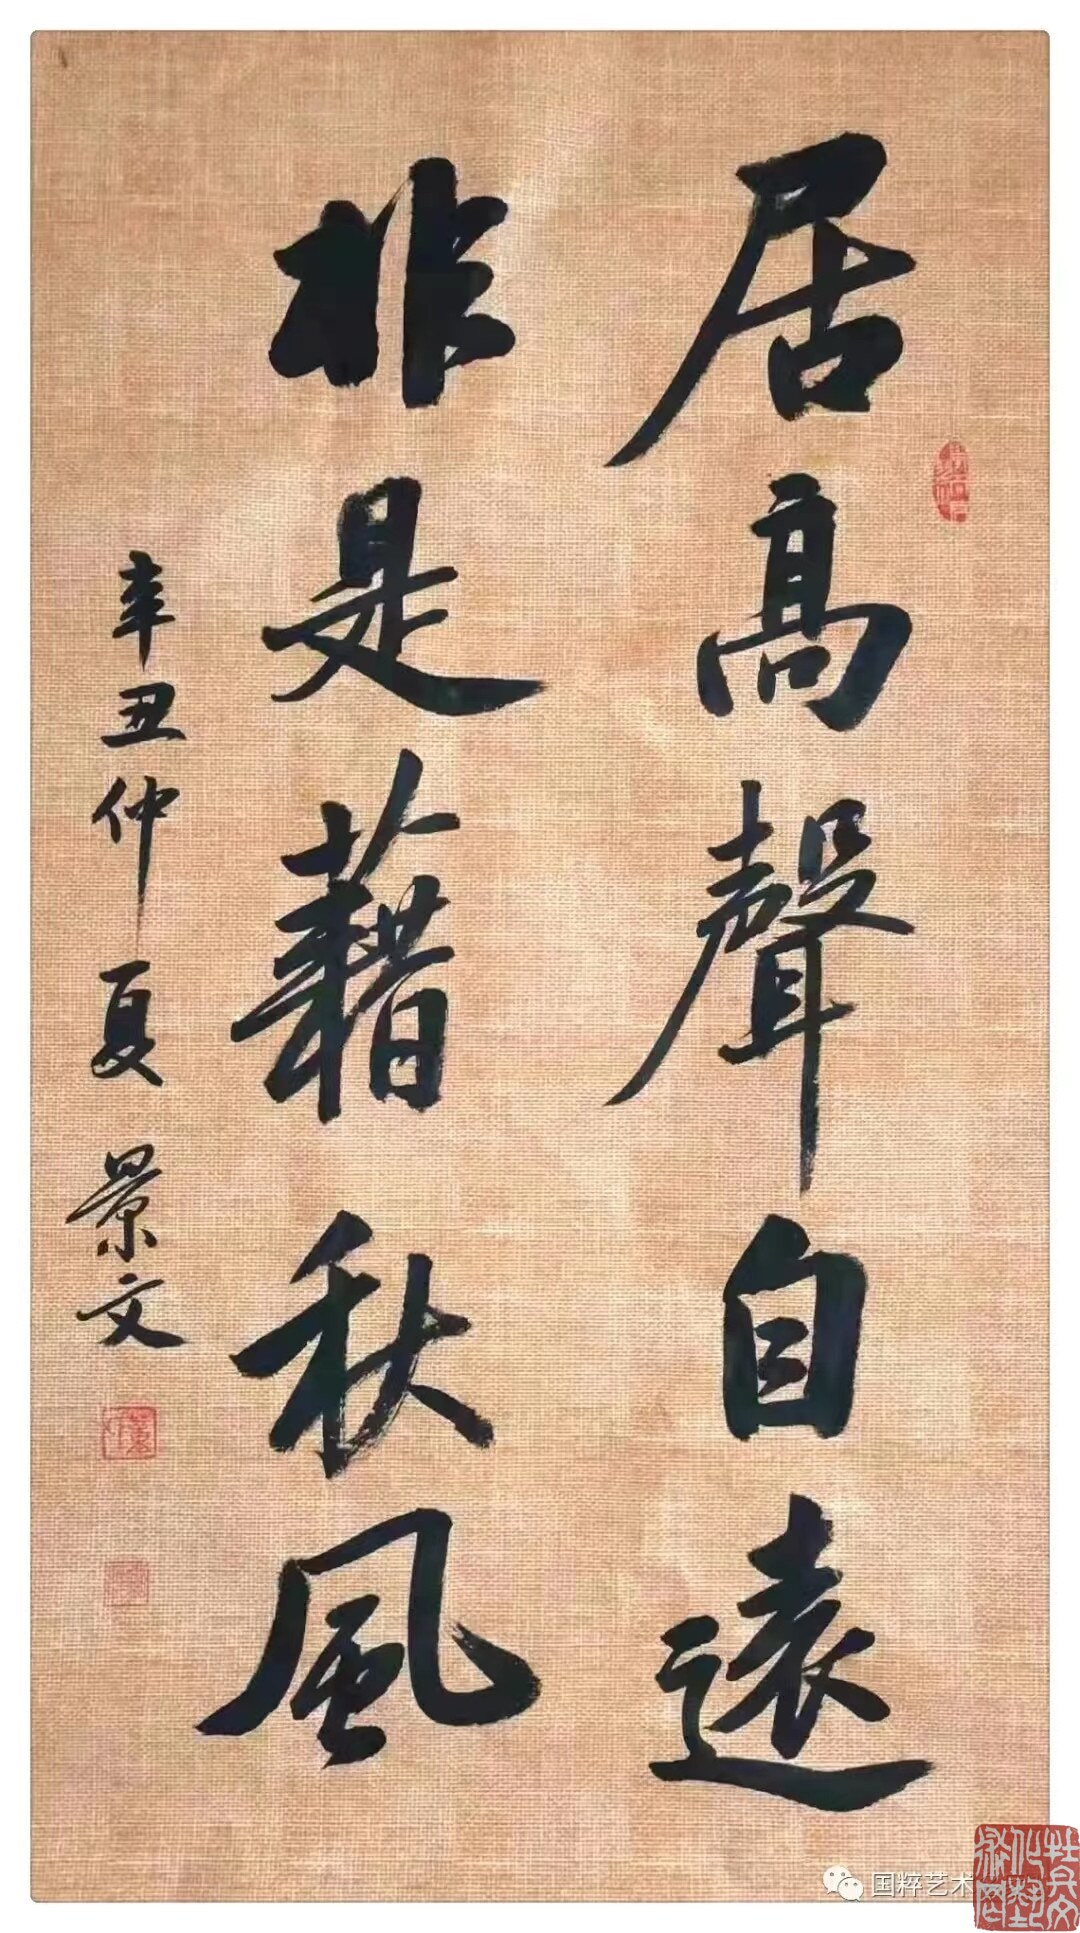 居高聲自遠
非是藉秋風
辛丑仲夏 景文
国粹艺术